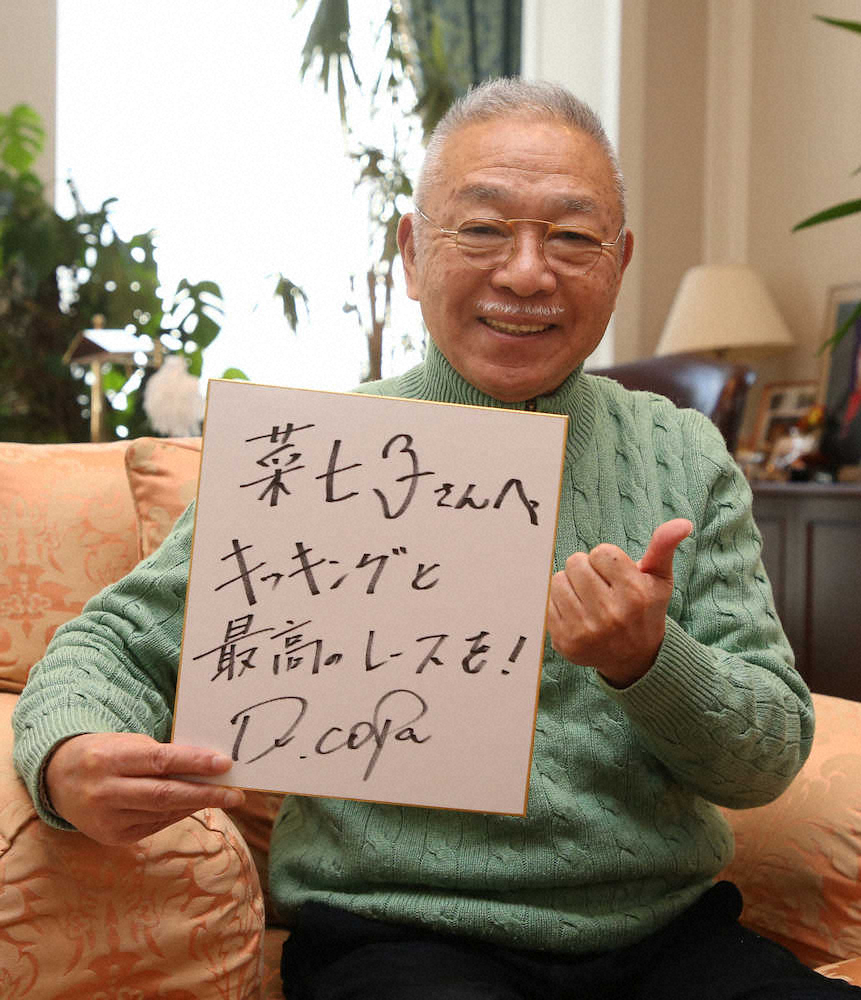 菜七子さんへ
キッキングと
最高のレースを!
Dr.copa